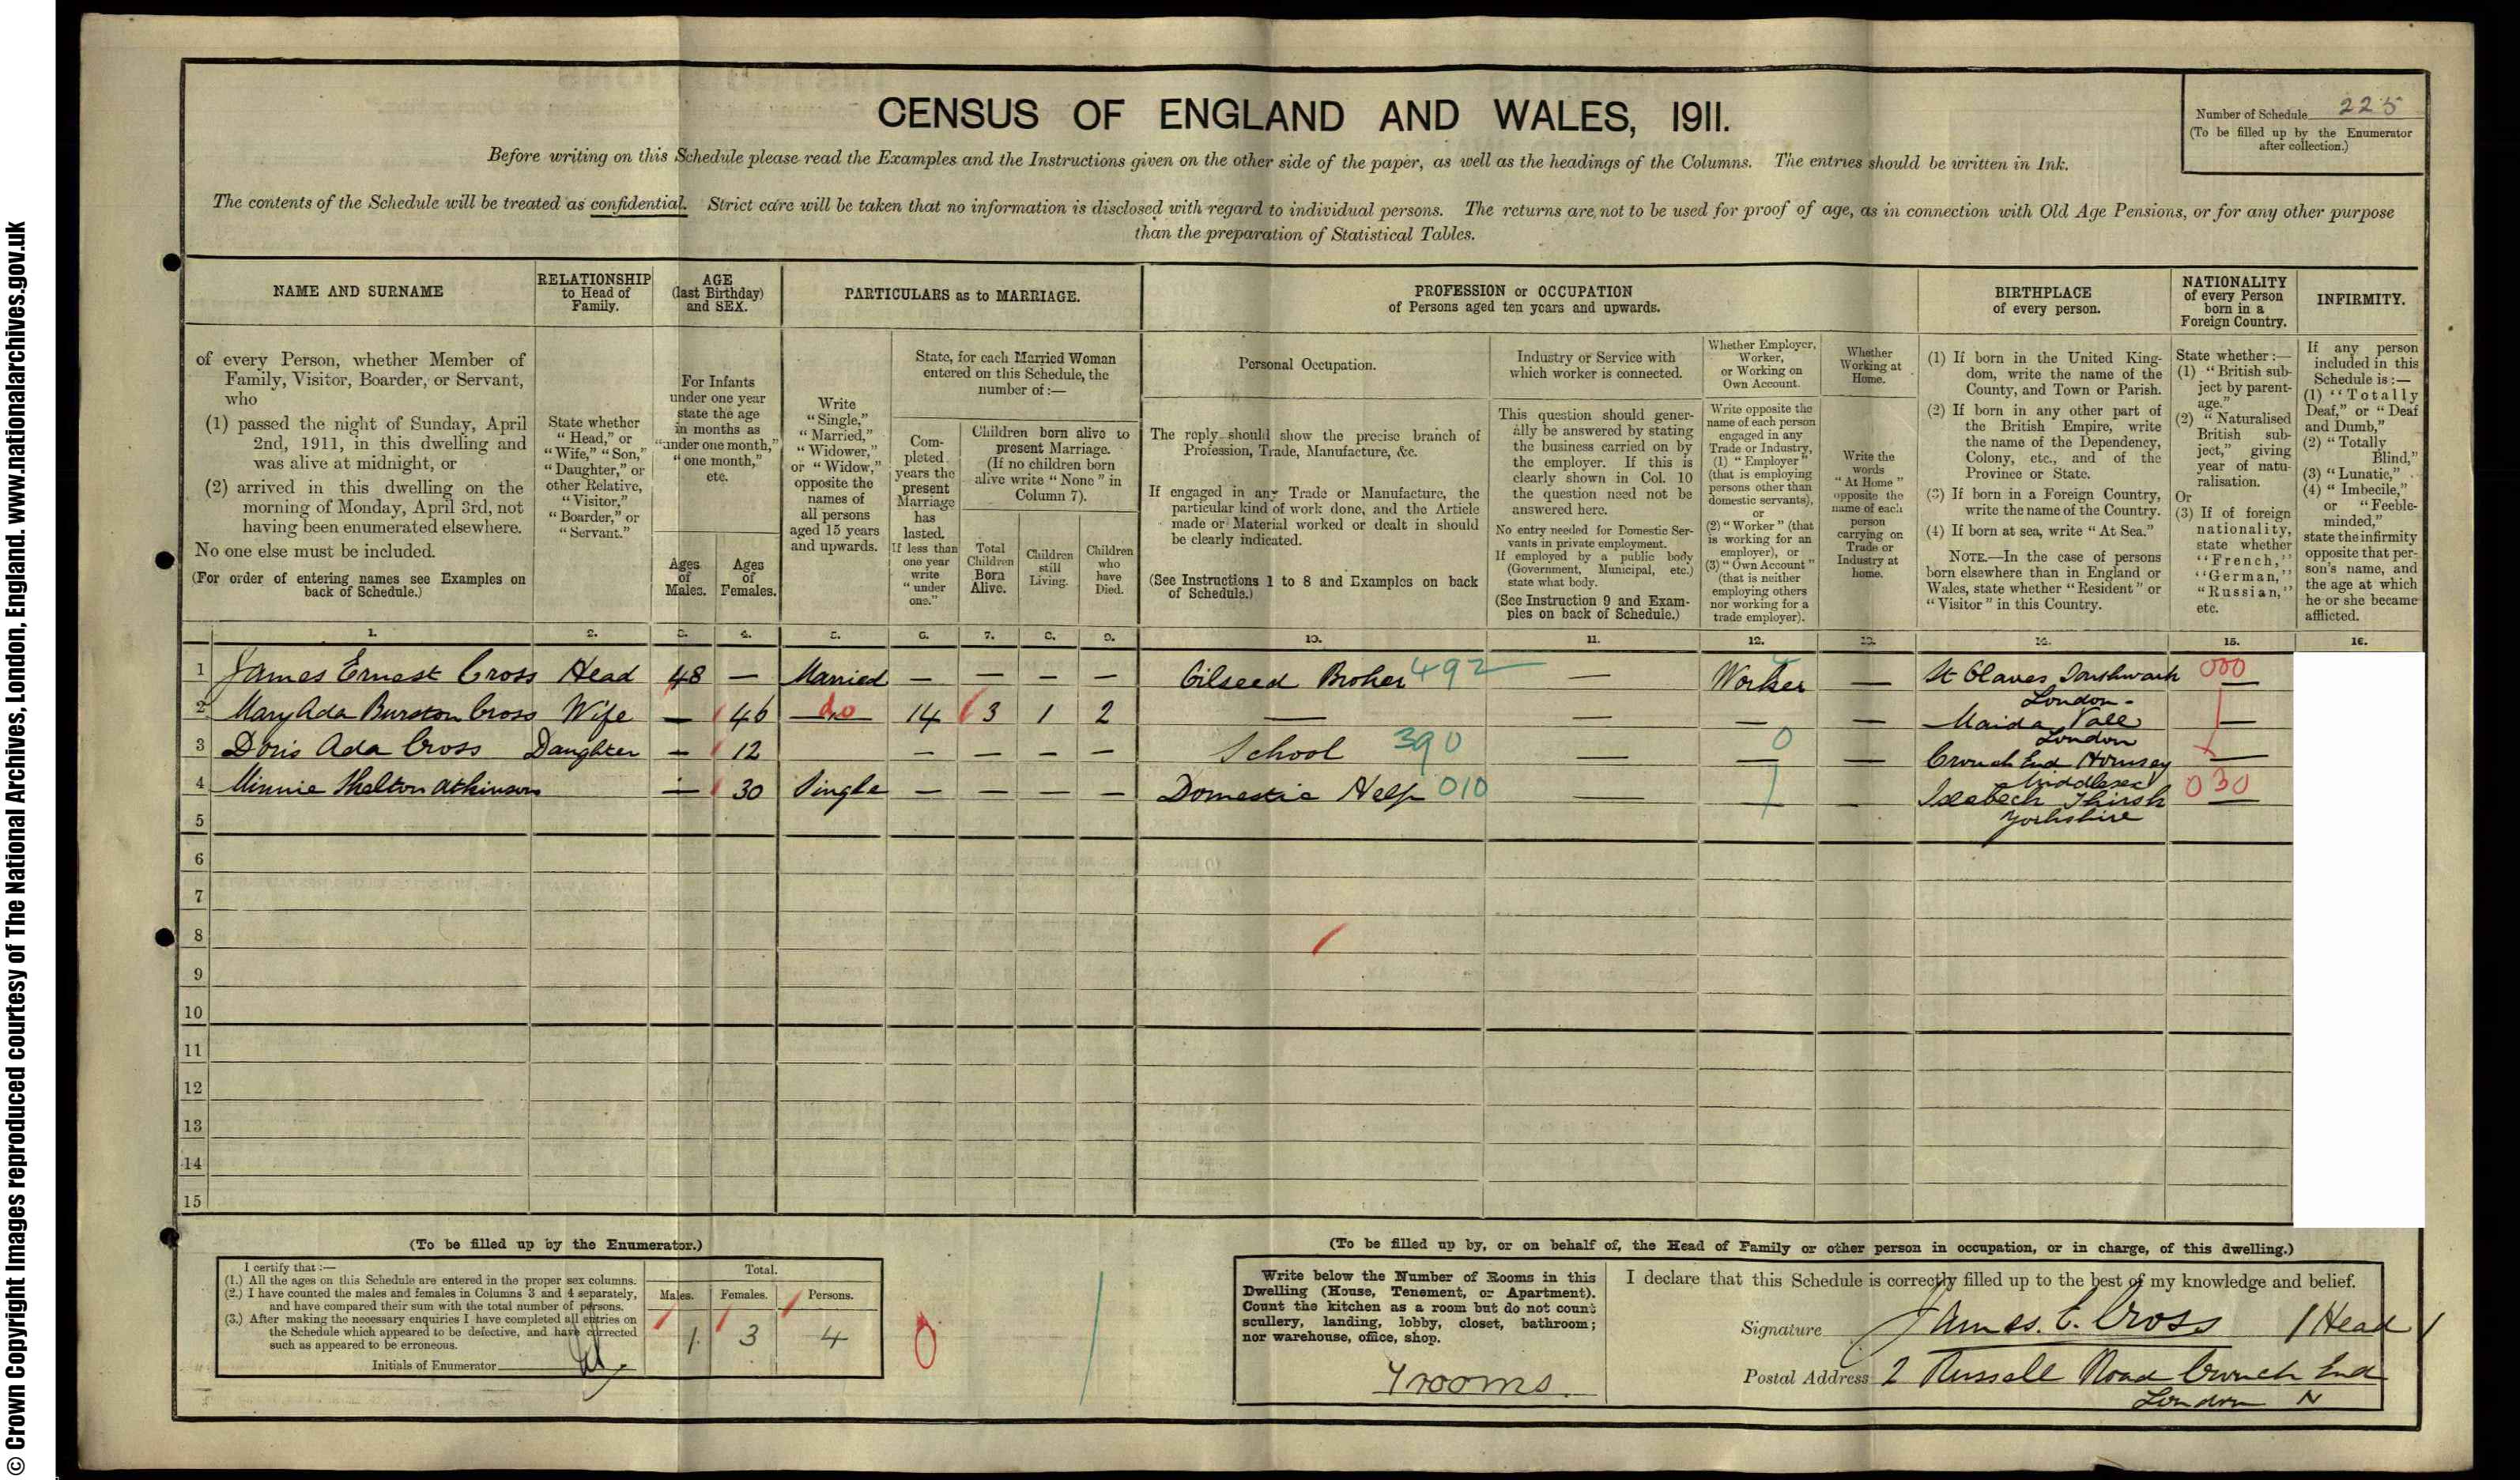 © Crown Copyright Images reproduced courtesy of The National Archives, London, England. www.nationalarchives.gov.uk
CENSUS OF ENGLAND AND WALES, 1911.
Number of Schedule 225
(To be filled up by the Enumerator
after collection.)
Before writing on this Schedule please read the Examples and the Instructions given on the other side of the paper, as well as the headings of the Columns. The entries should be written in Ink.
The contents of the Schedule will be treated as confidential. Strict care will be taken that no information is disclosed with regard to individual persons. The returns are not to be used for proof of age, as in connection with Old Age Pensions, or for any other purpose
than the preparation of Statistical Tables.
NAME AND SURNAME
of every Person, whether Member of
Family, Visitor, Boarder, or Servant,
who
(1) passed the night of Sunday, April
2nd, 1911, in this dwelling and
was alive at midnight, or
(2) arrived in this dwelling on the
morning of Monday, April 3rd, not
having been enumerated elsewhere.
No one else must be included.
(For order of entering names see Examples on
back of Schedule.)
RELATIONSHIP
to Head of
Family.
State whether
"Head," or
"Wife," "Son,"
"Daughter," or
other Relative,
"Visitor,"
"Boarder," or
"Servant."
AGE
(last Birthday)
and SEX.
For Infants
under one year
state the age
in months as
"under one month,"
"one month,"
etc.
Ages
of
Males.
Ages
of
Females.
PARTICULARS as to MARRIAGE.
Write
"Single,"
"Married,"
"Widower,"
or "Widow,"
opposite the
names of
all persons
aged 15 years
and upwards.
State, for each Married Woman
entered on this Schedule, the
number of:—
Com-
pleted
years the
present
Marriage
has
lasted.
If less than
one year
write
"under
one."
Children born alive to
present Marriage.
(If no children born
alive write "None" in
Column 7).
Total
Children
Born
Alive.
Children
still
Living.
Children
who
have
Died.
PROFESSION or OCCUPATION
of Persons aged ten years and upwards.
Personal Occupation.
The reply should show the precise branch of
Profession, Trade, Manufacture, &c.
If engaged in any Trade or Manufacture, the
particular kind of work done, and the Article
made or Material worked or dealt in should
be clearly indicated.
(See Instructions 1 to 8 and Examples on back
of Schedule.)
Industry or Service with
which worker is connected.
This question should gener-
ally be answered by stating
the business carried on by
the employer. If this is
clearly shown in Col. 10
the question need not be
answered here.
No entry needed for Domestic Ser-
vants in private employment.
If employed by a public body
(Government, Municipal, etc.)
state what body.
(See Instruction 9 and Exam-
ples on back of Schedule.)
Whether Employer,
Worker,
or Working on
Own Account.
Write opposite the
name of each person
engaged in any
Trade or Industry,
(1) "Employer"
(that is employing
persons other than
domestic servants),
or
(2) "Worker" (that
is working for an
employer), or
(3) "Own Account"
(that is neither
employing others
nor working for a
trade employer).
Whether
Working at
Home.
Write the
words
"At Home"
opposite the
name of each
person
carrying on
Trade or
Industry at
home.
BIRTHPLACE
of every person.
(1) If born in the United King-
dom, write the name of the
County, and Town or Parish.
(2) If born in any other part of
the British Empire, write
the name of the Dependency,
Colony, etc., and of the
Province or State.
(3) If born in a Foreign Country,
write the name of the Country.
(4) If born at sea, write "At Sea."
NOTE.—In the case of persons
born elsewhere than in England or
Wales, state whether "Resident" or
"Visitor" in this Country.
NATIONALITY
of every Person
born in a
Foreign Country.
State whether:—
(1) "British sub-
ject by parent-
age."
(2) "Naturalised
British sub-
ject," giving
year of natu-
ralisation.
Or
(3) If of foreign
nationality,
state whether
"French,"
"German,"
"Russian,"
etc.
INFIRMITY.
If any person
included in this
Schedule is:—
(1) "Totally
Deaf," or "Deaf
and Dumb,"
(2) "Totally
Blind,"
(3) "Lunatic,"
(4) "Imbecile,"
or "Feeble-
minded,"
state the infirmity
opposite that per-
son's name, and
the age at which
he or she became
afflicted.
1. 2. 3. 4. 5. 6. 7. 8. 9. 10. 11. 12. 13. 14. 15. 16.
1 James Ernest Cross Head 48 — Married — — — — Oilseed Broker 492 — Worker — St Olaves Southwark London - 000 —
2 Mary Ada Burston Cross Wife — 46 do 14 3 1 2 — — — — Maida Vale London —
3 Doris Ada Cross Daughter — 12 — — — — School 390 — 0 — — Crouch End Hornsey Middlesex —
4 Minnie Shelton Atkinson — 30 Single — — — — Domestic Help 010 — — — Islebeck Thirsk Yorkshire 030 —
5
6
7
8
9
10
11
12
13
14
15
(To be filled up by the Enumerator.)
I certify that:—
(1.) All the ages on this Schedule are entered in the proper sex columns.
(2.) I have counted the males and females in Columns 3 and 4 separately,
and have compared their sum with the total number of persons.
(3.) After making the necessary enquiries I have completed all entries on
the Schedule which appeared to be defective, and have corrected
such as appeared to be erroneous.
Initials of Enumerator
Total.
Males. Females. Persons.
1 3 4
0
(To be filled up by, or on behalf of, the Head of Family or other person in occupation, or in charge, of this dwelling.)
Write below the Number of Rooms in this
Dwelling (House, Tenement, or Apartment).
Count the kitchen as a room but do not count
scullery, landing, lobby, closet, bathroom;
nor warehouse, office, shop.
7 rooms.
I declare that this Schedule is correctly filled up to the best of my knowledge and belief.
Signature James. E. Cross / Head /
Postal Address 2 Russell Road Crouch End
London N